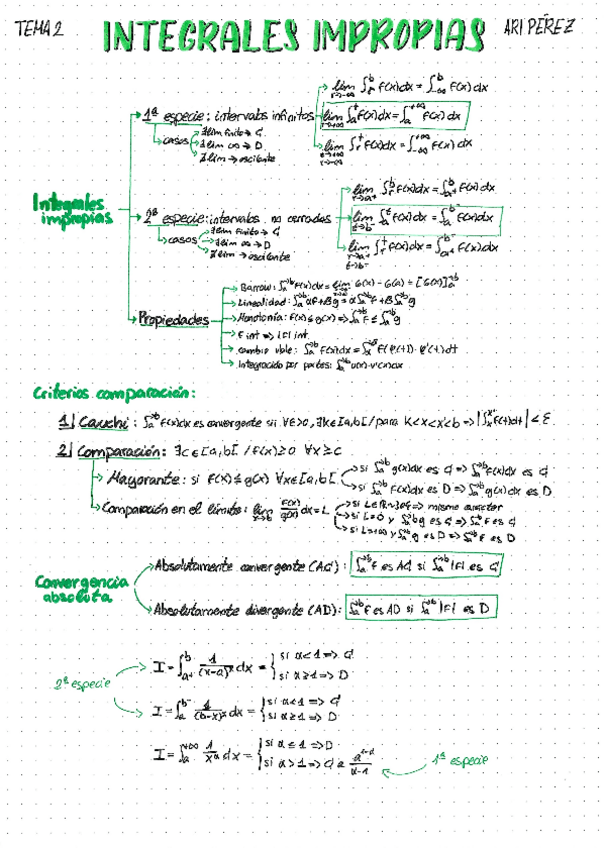 TEMA 2 INTEGRALES IMPROPIAS ARI PÉREZ
Integrales impropias
1ª especie: intervalos infinitos
lim r→-∞ ∫_r^b f(x)dx = ∫_{-∞}^b f(x)dx
lim t→+∞ ∫_a^t f(x)dx = ∫_a^{+∞} f(x)dx
lim ∫_r^t f(x)dx = ∫_{-∞}^{+∞} f(x)dx
casos
∃ lim finito → C
∃ lim ∞ → D
∄ lim → oscilante
2ª especie: intervalos no cerrados
lim r→a⁺ ∫_r^b f(x)dx = ∫_{a⁺}^b f(x)dx
lim t→b⁻ ∫_a^t f(x)dx = ∫_a^{b⁻} f(x)dx
lim r→a⁺ t→b⁻ ∫_r^t f(x)dx = ∫_{a⁺}^{b⁻} f(x)dx
casos
∃ lim finito → C
∃ lim ∞ → D
∄ lim → oscilante
Propiedades
Barrow: ∫_a^{→b} f(x)dx = lim G(x) - G(a) = [G(x)]_a^{→b}
Linealidad: ∫_a^{→b} αf+βg = α∫_a^{→b} f + β∫_a^{→b} g
Monotonía: f(x) ≤ g(x) => ∫_a^{→b} f ≤ ∫_a^{→b} g
f int => |f| int
cambio vble: ∫_a^{→b} f(x)dx = ∫ f(φ(t))·φ'(t)dt
Integración por partes: ∫_a^{→b} u(x)·v'(x)dx
Criterios comparación:
1| Cauchi: ∫_a^{→b} f(x)dx es convergente si ∀ε>0, ∃k∈[a,b[ / para k<x<x'<b => |∫_x^{x'} f(t)dt| < ε
2| Comparación: ∃c∈[a,b[ / f(x)≥0 ∀x≥c
Mayorante: si f(x)≤g(x) ∀x∈[a,b[
si ∫_a^{→b} g(x)dx es C => ∫_a^{→b} f(x)dx es C
si ∫_a^{→b} f(x)dx es D => ∫_a^{→b} g(x)dx es D
Comparación en el límite: lim x→b f(x)/g(x) dx = L
si L∈R-{0} => mismo carácter
si L=0 y ∫_a^{→b} g es C => ∫_a^{→b} f es C
si L=+∞ y ∫_a^{→b} g es D => ∫_a^{→b} f es D
Convergencia absoluta
Absolutamente convergente (AC): ∫_a^{→b} f es AC si ∫_a^{→b} |f| es C
Absolutamente divergente (AD): ∫_a^{→b} f es AD si ∫_a^{→b} |f| es D
2ª especie
I = ∫_{a⁺}^b 1/(x-a)^α dx = { si α<1 => C
si α≥1 => D
I = ∫_a^{b⁻} 1/(b-x)^α dx = { si α<1 => C
si α≥1 => D
I = ∫_a^{+∞} 1/x^α dx = { si α≤1 => D
si α>1 => C a a^{1-α}/α-1
1ª especie